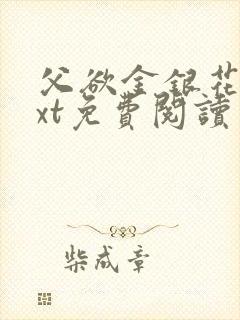 父欲金銀花
xt免費閱讀
柴成章